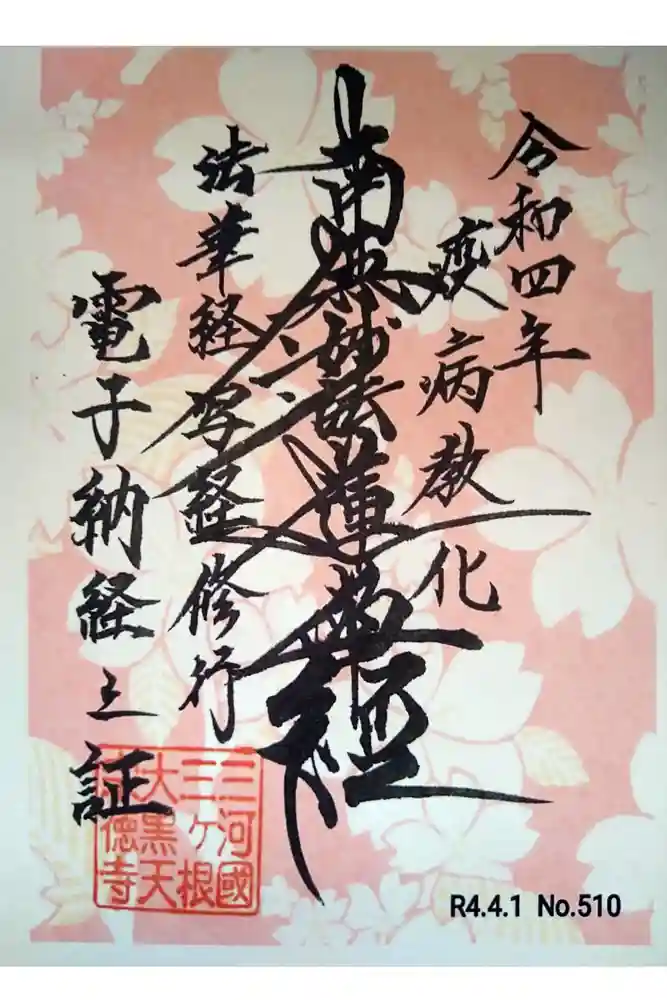 令和四年
疫病教化
南無妙法蓮華経
法華経写経修行
電子納経之証
三河國
三ヶ根
大黒天
徳寺
R4.4.1 No.510